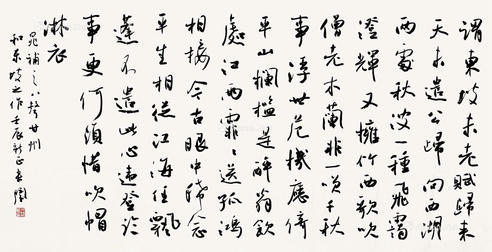 謂東坡未老賦歸來
天未遣公歸向西湖
兩處秋波一種飛靄
澄輝又擁竹西歌吹
僧老木蘭非一笑千秋
事浮世危機應倚
平山欄檻是醉翁飲
處江雨霏々送孤鴻
相接今古眼中稀念
平生相從江海任飄
蓬不遣此心違登臨
事更何須惜吹帽
淋衣
晁補之八聲甘州
和東坡之作壬辰新正